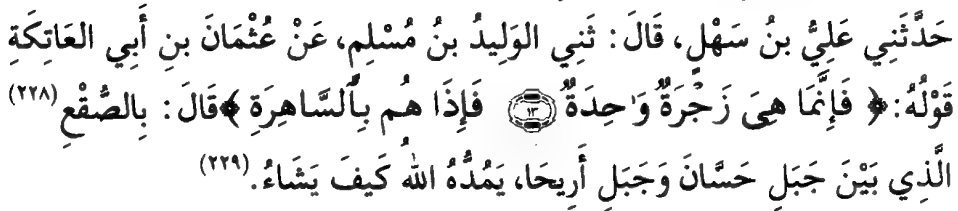 حَدَّثَنِي عَلِيُّ بنُ سَهْلٍ، قَالَ: ثَنِي الوَلِيدُ بنُ مُسْلِمٍ، عَنْ عُثْمَانَ بنِ أَبِي العَاتِكَةِ
قَوْلُهُ: ﴿ فَإِنَّمَا هِىَ زَجْرَةٌ وَٰحِدَةٌ ١٣ فَإِذَا هُم بِٱلسَّاهِرَةِ ﴾ قَالَ: بِالصُّقْعِ (٢٢٨)
الَّذِي بَيْنَ جَبَلِ حَسَّانَ وَجَبَلِ أَرِيحَا، يَمُدُّهُ اللهُ كَيفَ يَشَاءُ. (٢٢٩)